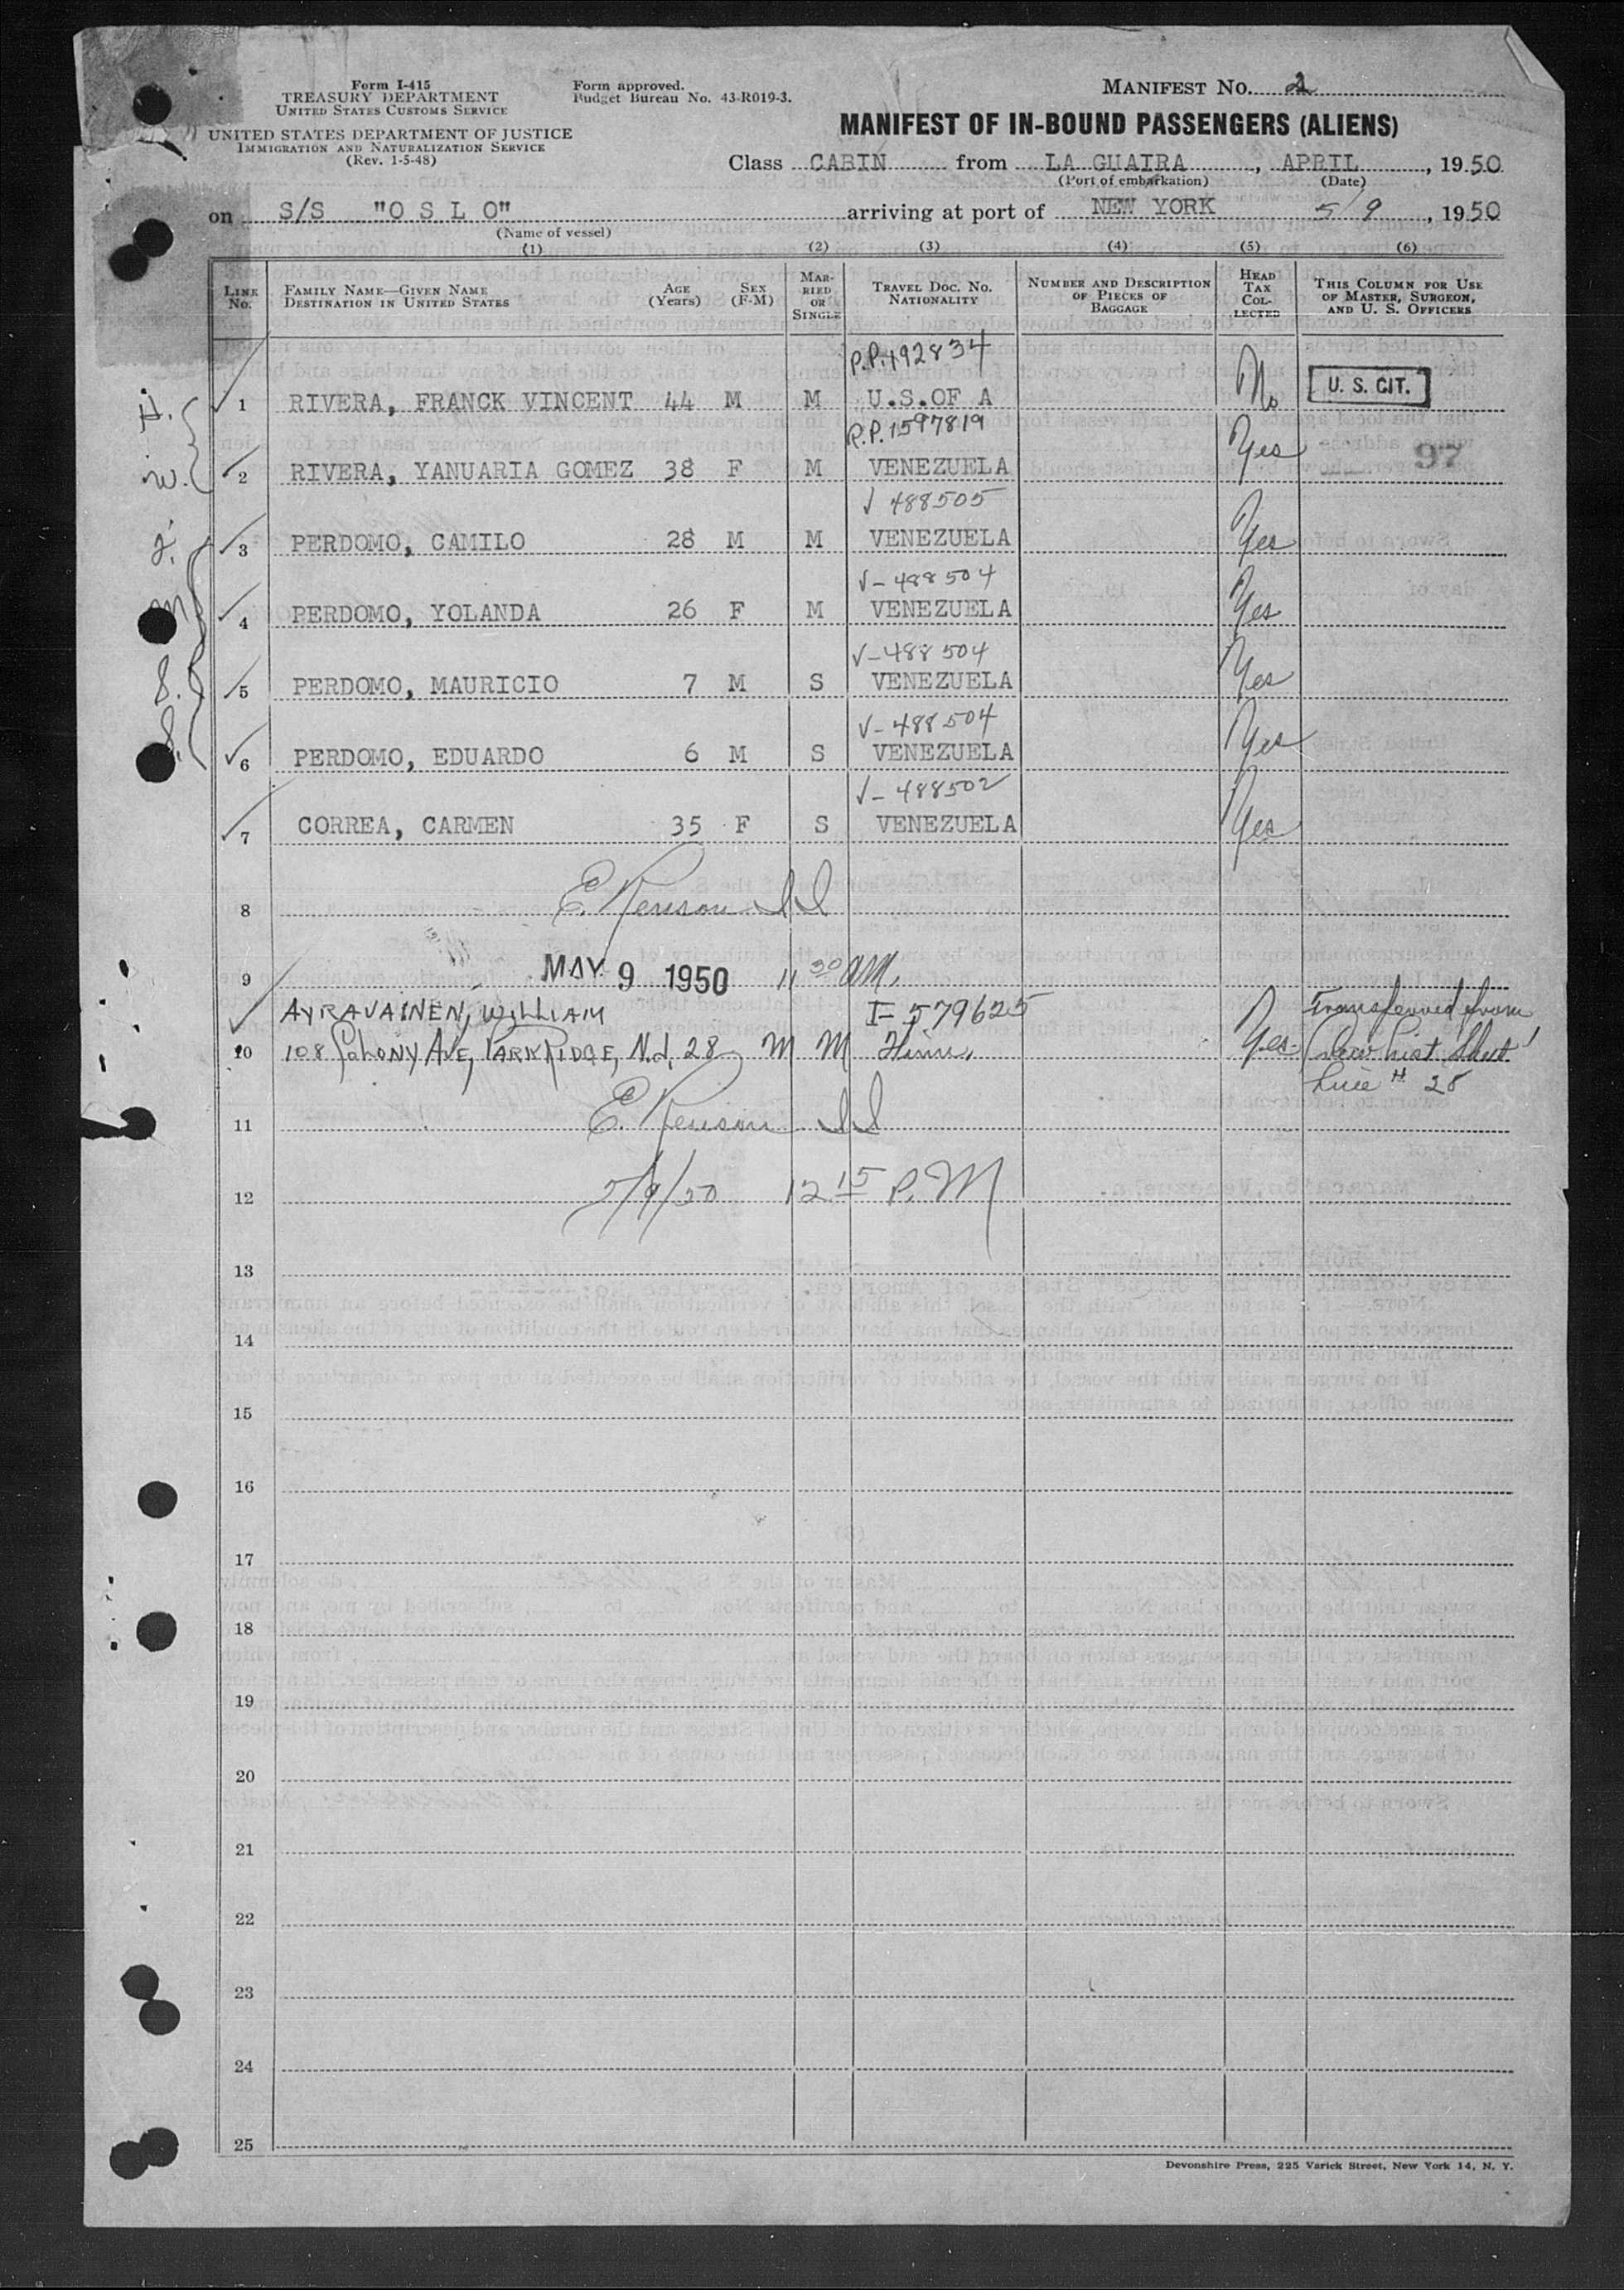 Form I-415
TREASURY DEPARTMENT
UNITED STATES CUSTOMS SERVICE
UNITED STATES DEPARTMENT OF JUSTICE
IMMIGRATION AND NATURALIZATION SERVICE
(Rev. 1-5-48)
Form approved.
Budget Bureau No. 43-R019-3.
MANIFEST NO. 2
MANIFEST OF IN-BOUND PASSENGERS (ALIENS)
Class CABIN from LA GUAIRA, APRIL, 1950
(Port of embarkation) (Date)
on S/S "O S L O" arriving at port of NEW YORK 5/9, 1950
(Name of vessel)
(1) (2) (3) (4) (5) (6)
LINE NO. FAMILY NAME—GIVEN NAME DESTINATION IN UNITED STATES AGE (Years) SEX (F-M) MARRIED OR SINGLE TRAVEL DOC. NO. NATIONALITY NUMBER AND DESCRIPTION OF PIECES OF BAGGAGE HEAD TAX COLLECTED THIS COLUMN FOR USE OF MASTER, SURGEON, AND U. S. OFFICERS
P.P. 192834
H. 1 RIVERA, FRANCK VINCENT 44 M M U.S.OF A No U. S. CIT.
P.P. 1597819
W. 2 RIVERA, YANUARIA GOMEZ 38 F M VENEZUELA Yes 97
V 488505
3 PERDOMO, CAMILO 28 M M VENEZUELA Yes
V-488504
4 PERDOMO, YOLANDA 26 F M VENEZUELA Yes
V-488504
5 PERDOMO, MAURICIO 7 M S VENEZUELA Yes
V-488504
6 PERDOMO, EDUARDO 6 M S VENEZUELA Yes
V-488502
7 CORREA, CARMEN 35 F S VENEZUELA Yes
8 E. Kenison II
9 MAY 9 1950 11 30 AM.
AYRAVAINEN, WILLIAM I-579625 Transferred from
10 108 COLONY AVE, PARK RIDGE, N.J. 28 M M Finn. Yes
Line # 28
11 E. Kenison II
12 5/9/50 12 15 P.M
13
14
15
16
17
18
19
20
21
22
23
24
25
Devonshire Press, 225 Varick Street, New York 14, N. Y.